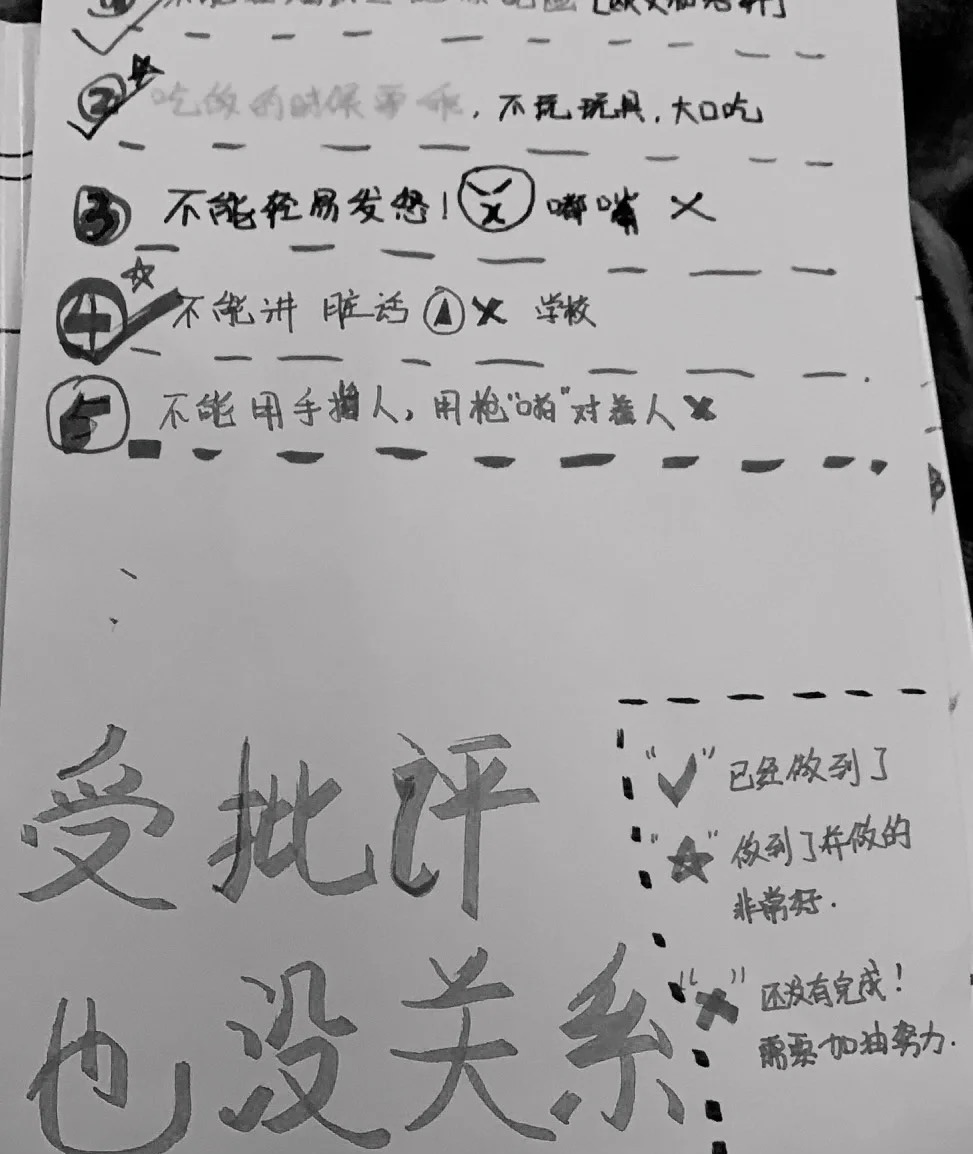 ② 吃饭的时候要乖，不玩玩具，大口吃
③ 不能轻易发怒！嘟嘴 ×
④ 不能讲 脏话 × 学校
5 不能用手指人，用枪“啪”对着人 ×
受批评
也没关系
“✓” 已经做到了
“★” 做到了并做的
非常好.
“×” 还没有完成！
需要加油努力.